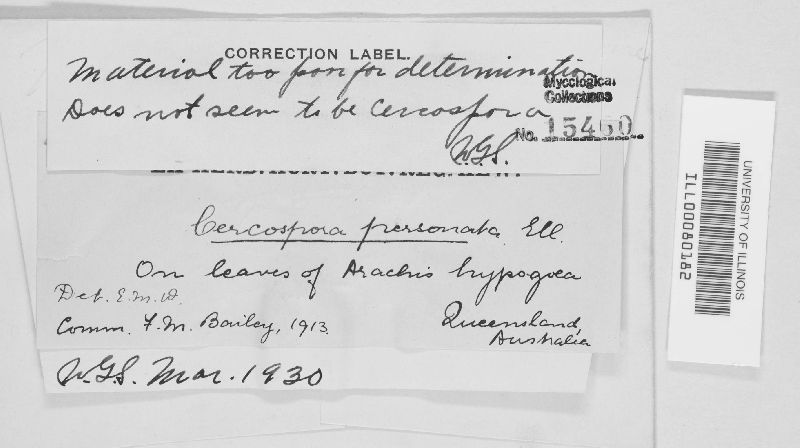 CORRECTION LABEL.
Material too poor for determination
Does not seem to be Cercospora
W.G.S.
Mycological
Collections
No. 15460
Cercospora personata Ell.
On leaves of Arachis hypogoea
Det. E.M.W.
Comm. F.M. Bailey, 1913
Queensland,
Australia
W.G.S. Mar. 1930
UNIVERSITY OF ILLINOIS
ILL00080182